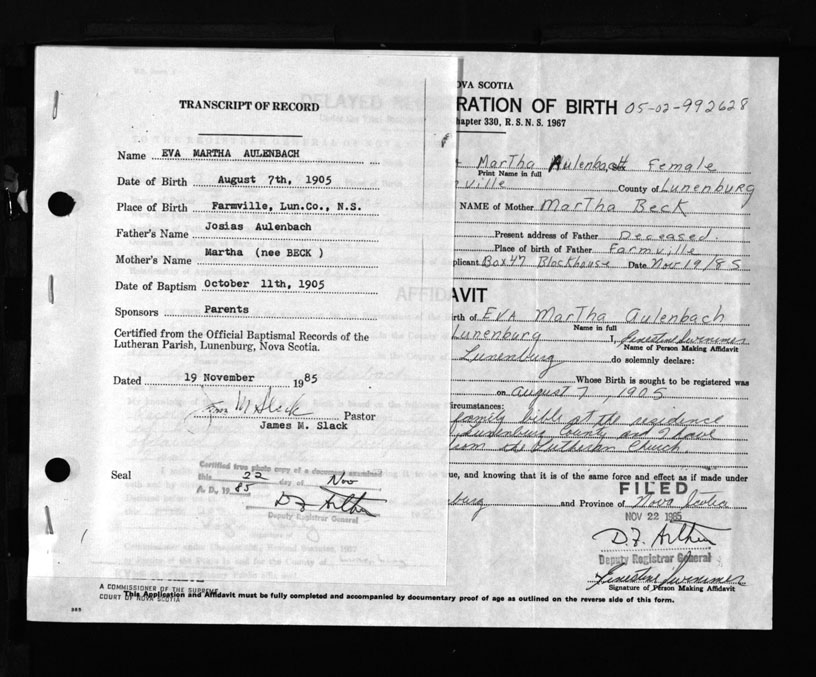 TRANSCRIPT OF RECORD
Name EVA MARTHA AULENBACH
Date of Birth August 7th, 1905
Place of Birth Farmville, Lun.Co., N.S.
Father's Name Josias Aulenbach
Mother's Name Martha (nee BECK )
Date of Baptism October 11th, 1905
Sponsors Parents
Certified from the Official Baptismal Records of the
Lutheran Parish, Lunenburg, Nova Scotia.
Dated 19 November 1985
M Slack Pastor
James M. Slack
Seal
Certified true photo copy of a document examined
this 22 day of Nov
A. D., 1985
D.F. Arthur
Deputy Registrar General
OVA SCOTIA
RATION OF BIRTH 05-02-992628
hapter 330, R.S.N.S. 1967
MarTha Aulenbach Female
Print Name in full
ville County of Lunenburg
NAME of Mother MarTha Beck
Present address of Father Deceased.
Place of birth of Father Farmville
plicant Box 47 Blockhouse Date Nov 19/85
AVIT
irth of EVA MarTha Aulenbach
Name in full
Lunenburg I, Ernestine Swinimer
Name of Person Making Affidavit
Lunenburg do solemnly declare:
Whose Birth is sought to be registered was
on August 7, 1905
ircumstances:
family bible at the residence
Lunenburg County and I have
from the Lutheran Church.
ue, and knowing that it is of the same force and effect as if made under
FILED
burg and Province of Nova Scotia
NOV 22 1985
D.F. Arthur
Deputy Registrar General
Ernestine Swinimer
Signature of Person Making Affidavit
A COMMISSIONER OF THE SUPREME
COURT OF NOVA SCOTIA
This Application and Affidavit must be fully completed and accompanied by documentary proof of age as outlined on the reverse side of this form.